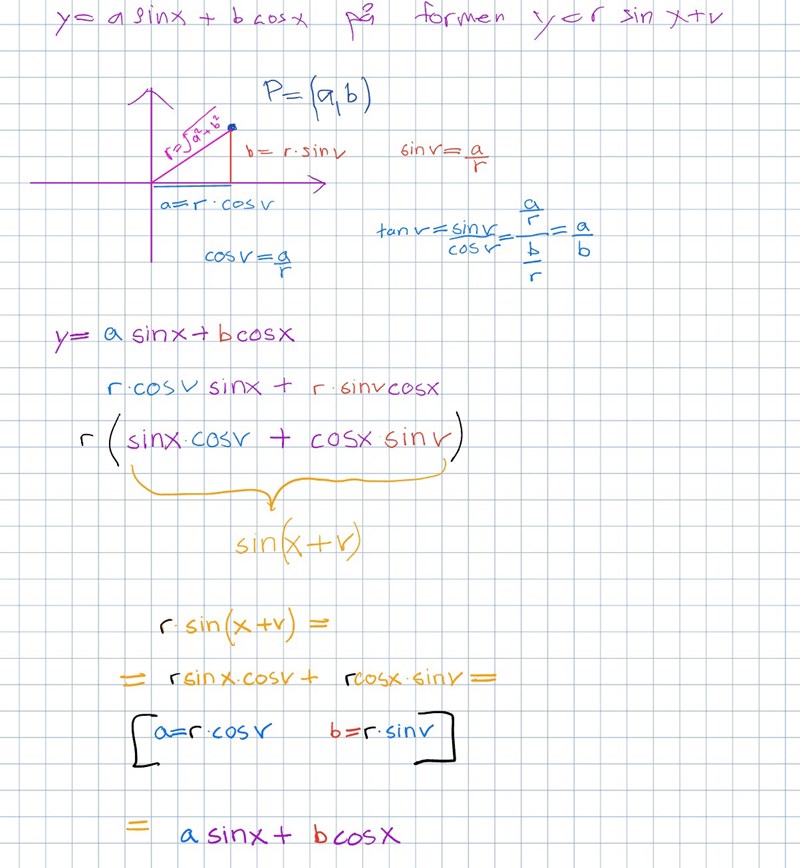 y = a sinx + b cosx på formen y = r sin x+v
P = (a,b)
r = √a²+b²
b = r · sinv
sinv = a/r
a = r · cosv
tanv = sinv/cosv = (a/r)/(b/r) = a/b
cosv = a/r
y = a sinx + b cosx
r · cosv sinx + r · sinv cosx
r (sinx · cosv + cosx · sinv)
sin(x+v)
r · sin(x+v) =
= r sinx · cosv + r cosx · sinv =
[a = r · cosv b = r · sinv]
= a sinx + b cosx